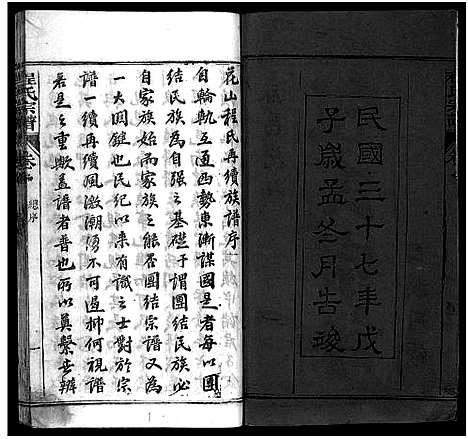 民國三十七年戊
子歲孟冬月告竣
花山程氏再續族譜序
自輪軌互通西勢東漸謀國是者每以團
結民族為自强之基礎于謂團結民族必
自家族始而家族之能否團結宗譜又為
一大關鍵也民紀以來有識之士對於宗
譜一續再續風激潮湧不可遏抑何視譜
若是之重歟蓋譜者普也所以奠繫世辨
程氏宗譜
卷
總序
一